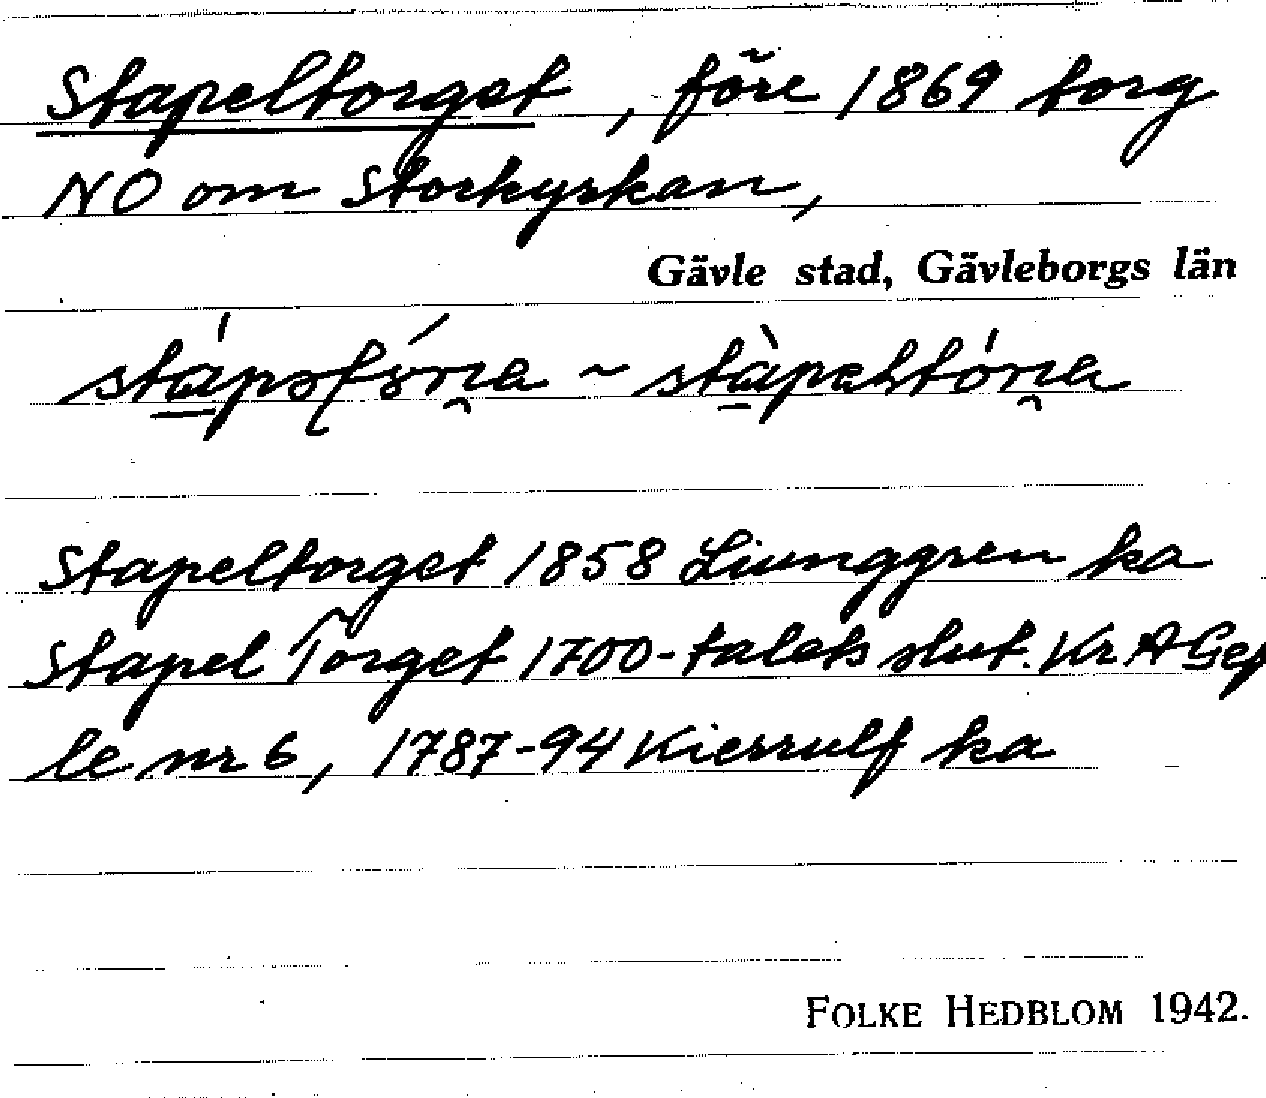 Stapeltorget, före 1869 torg
NO om Storkyrkan,
Gävle stad, Gävleborgs län
Stapeltorget 1858 Liunggren ka
Stapel Torget 1700-talets slut. Kr A Gep
le nr 6, 1787-94 Kierrulf ka
FOLKE HEDBLOM 1942.